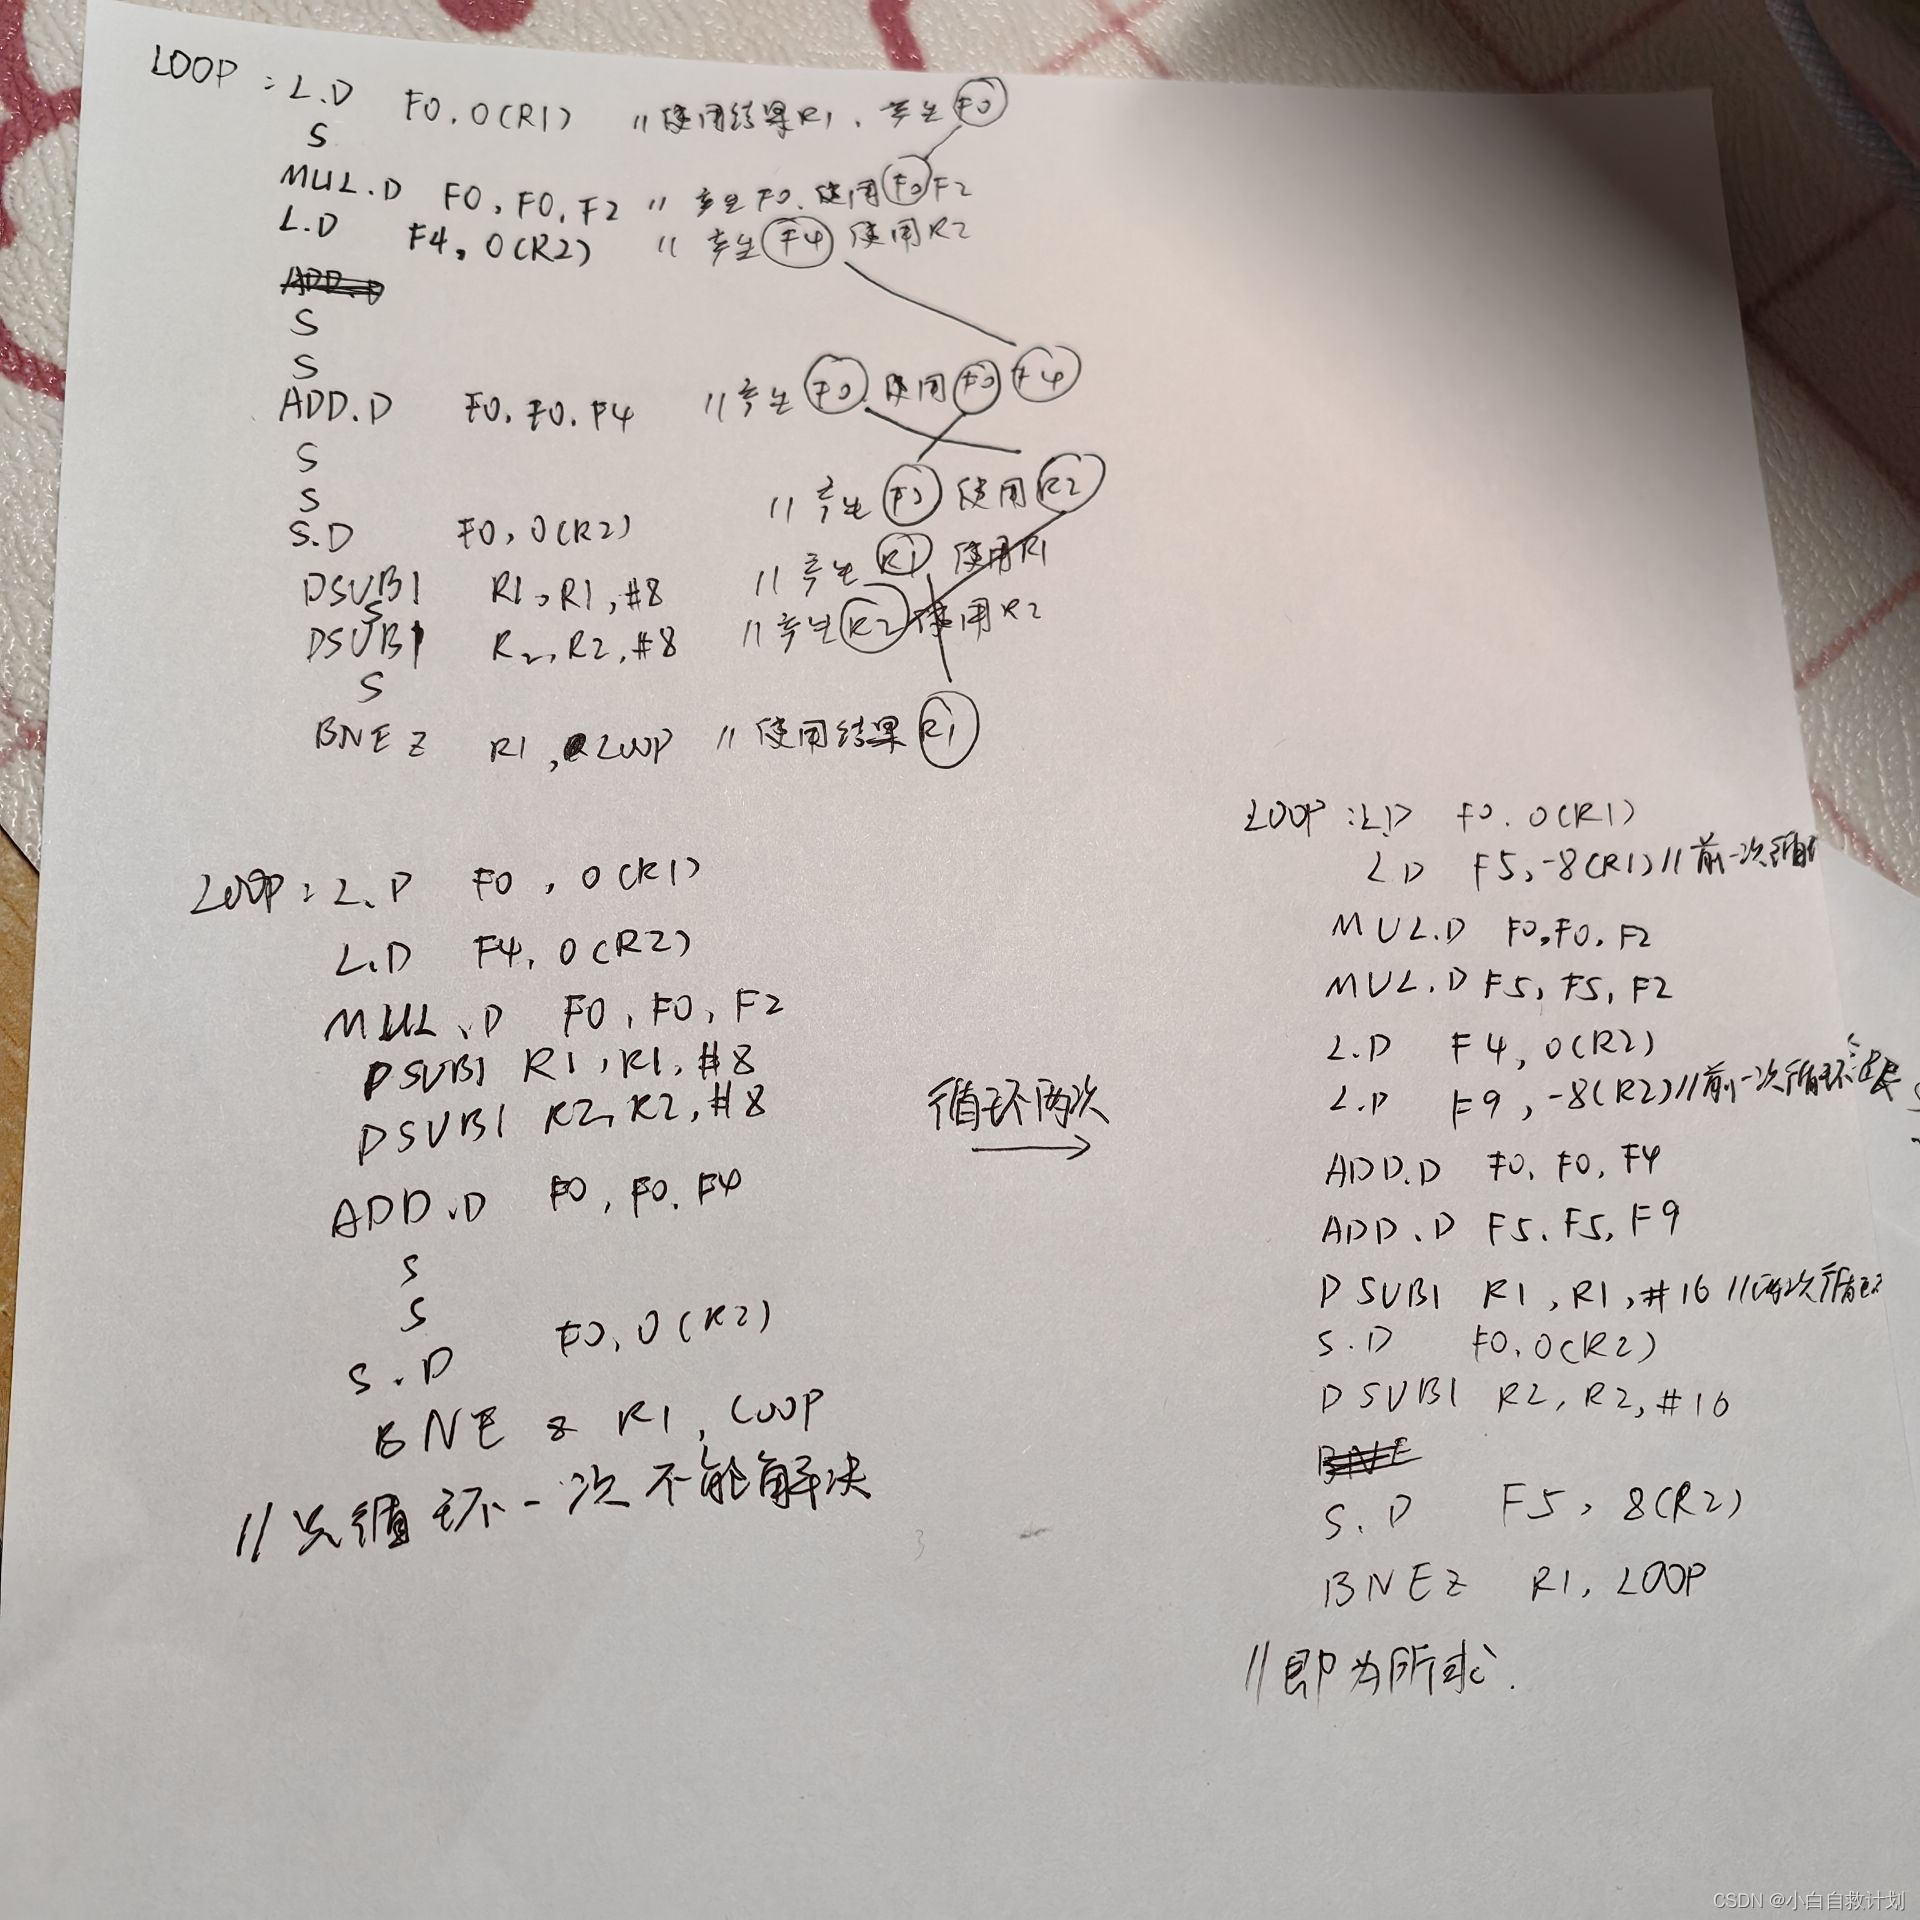 LOOP : L.D F0, 0(R1) // 使用结果R1, 产生 F0
S
MUL.D F0, F0, F2 // 产生F0, 使用 F0 F2
L.D F4, 0(R2) // 产生 F4 使用R2
S
S
ADD.D F0, F0, F4 // 产生 F0, 使用 F0 F4
S
S
S.D F0, 0(R2) // 产生 使用 R2
DSUBI R1, R1, #8 // 产生 R1 使用R1
S
DSUBI R2, R2, #8 // 产生 R2 使用R2
S
BNEZ R1, LOOP // 使用结果 R1
LOOP : L.D F0, 0(R1)
L.D F4, 0(R2)
MUL.D F0, F0, F2
DSUBI R1, R1, #8
DSUBI R2, R2, #8
ADD.D F0, F0, F4
S
S
S.D F0, 0(R2)
BNEZ R1, LOOP
// 只循环一次不能解决
循环两次
LOOP : L.D F0, 0(R1)
L.D F5, -8(R1) // 前一次循
MUL.D F0, F0, F2
MUL.D F5, F5, F2
L.D F4, 0(R2)
L.D F9, -8(R2) // 前一次循环
ADD.D F0, F0, F4
ADD.D F5, F5, F9
DSUBI R1, R1, #16 // 两次循环
S.D F0, 0(R2)
DSUBI R2, R2, #16
S.D F5, 8(R2)
BNEZ R1, LOOP
// 即为所求.
CSDN @小白自救计划